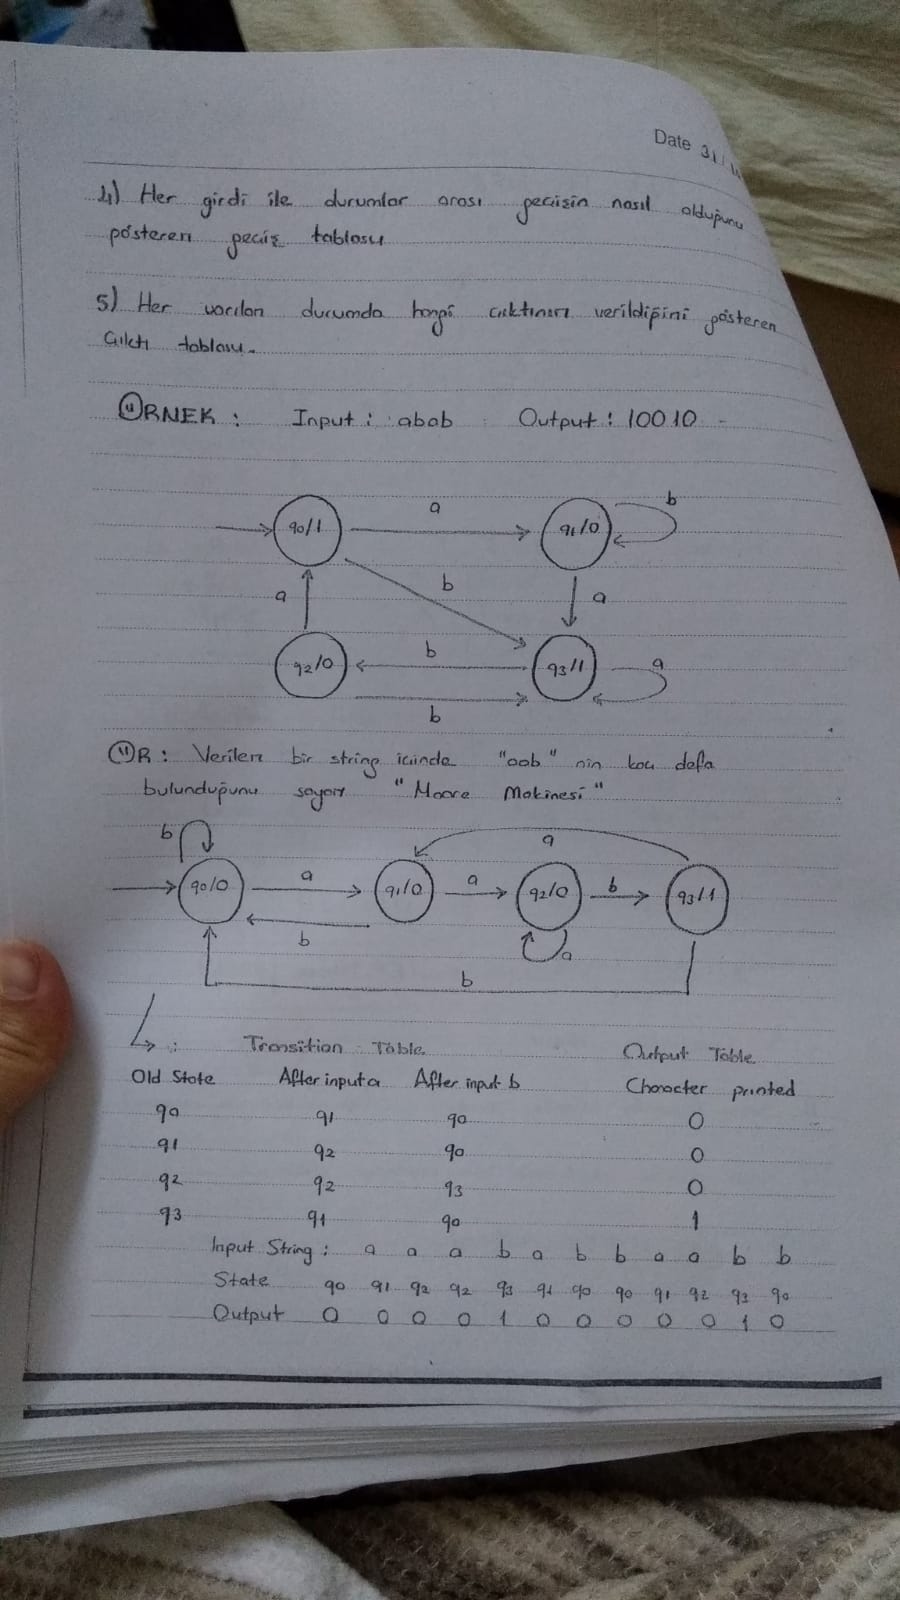 Date 31/
4) Her girdi ile durumlar arası geçişin nasıl olduğunu
gösteren geçiş tablosu
5) Her varılan durumda hangi çıktının verildiğini gösteren
Çıktı tablosu.
ÖRNEK : Input : abab Output : 10010
a b
q0/1 q1/0
a b a
b
q2/0 q3/1 a
b
ÖR : Verilen bir string içinde "aab" nin kaç defa
bulunduğunu sayan "Moore Makinesi"
b a
q0/0 a q1/0 a q2/0 b q3/1
b a
b
Transition Table Output Table
Old State After input a After input b Character printed
q0 q1 q0 0
q1 q2 q0 0
q2 q2 q3 0
q3 q1 q0 1
Input String : a a a b a b b a a b b
State q0 q1 q2 q2 q3 q1 q0 q0 q1 q2 q3 q0
Output 0 0 0 0 1 0 0 0 0 0 1 0